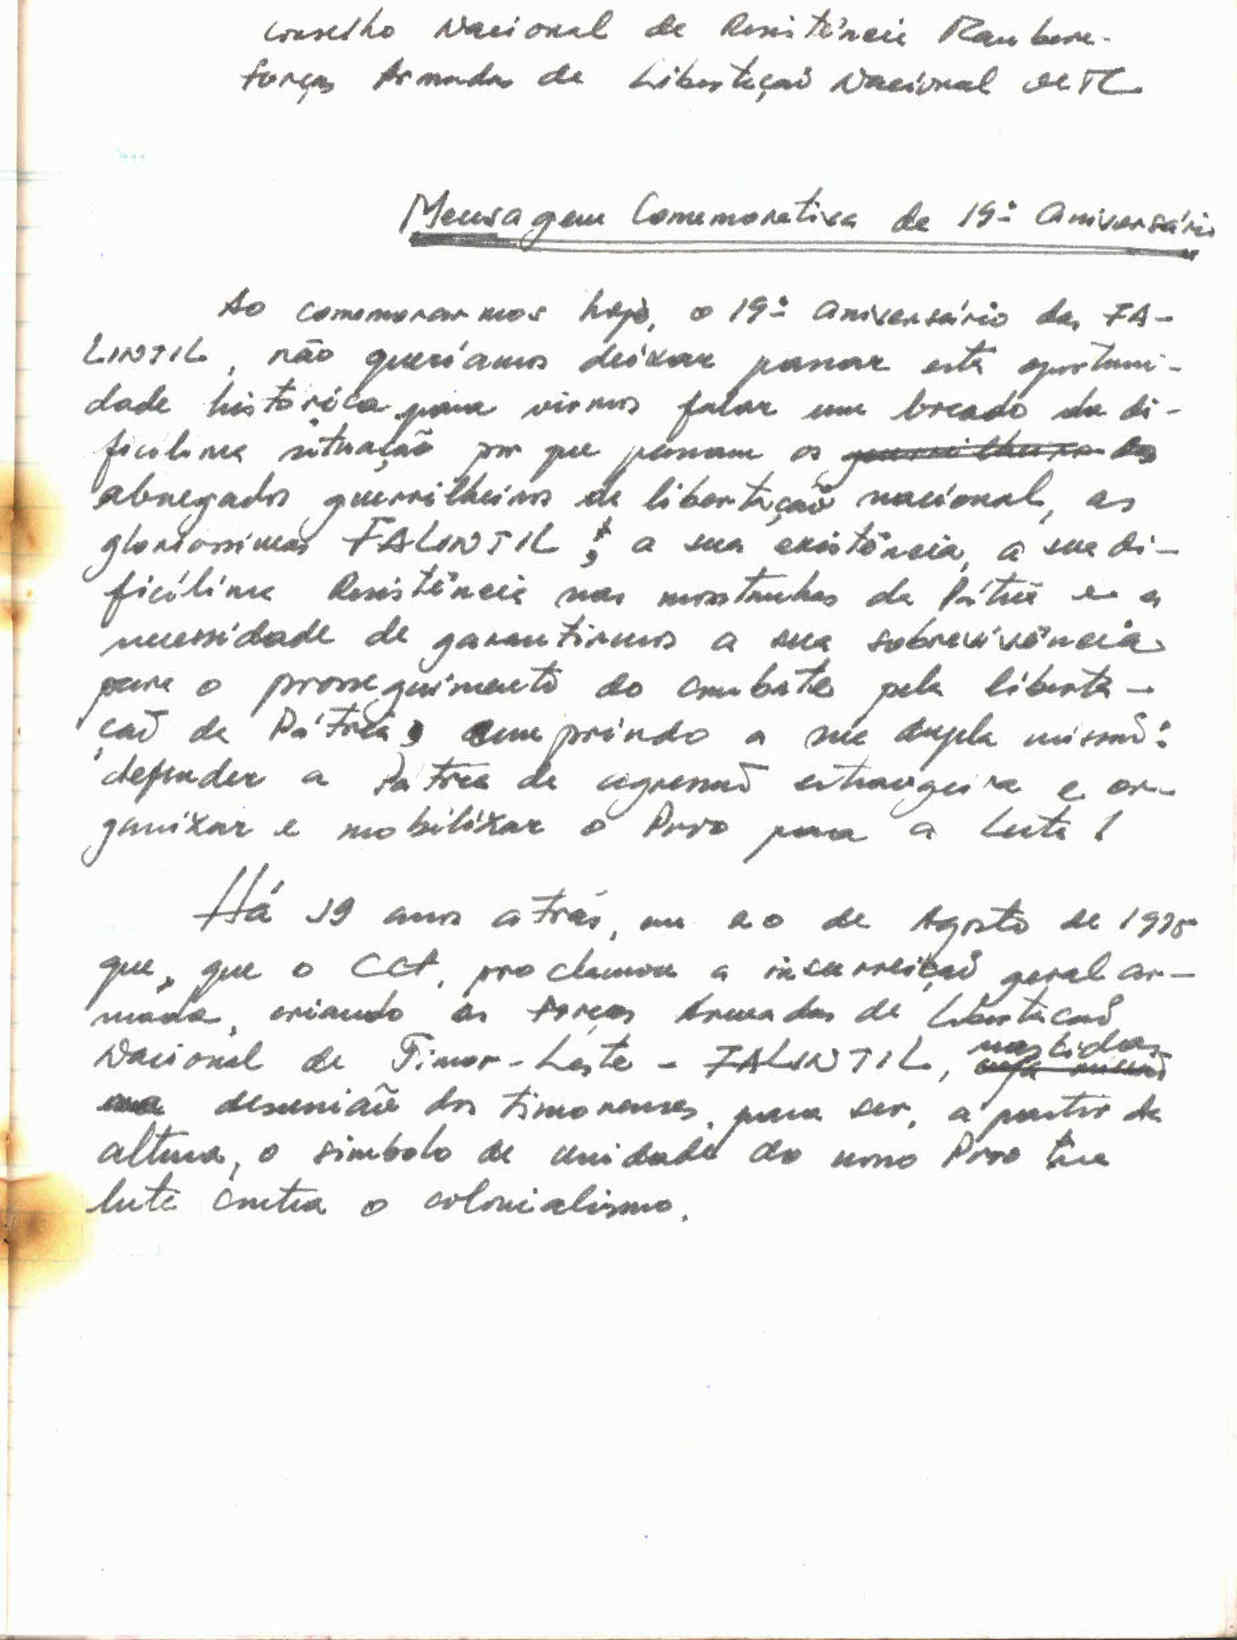 Conselho Nacional de Resistência Maubere.
Forças Armadas de Libertação Nacional de TL
Mensagem Comemorativa de 19º Aniversário
Ao comemorarmos hoje, o 19º aniversário das FA-
LINTIL, não queríamos deixar passar esta oportuni-
dade histórica para virmos falar um bocado da di-
ficílima situação por que passam os guerrilheiros das
abnegados guerrilheiros de libertação nacional, as
gloriosíssimas FALINTIL; a sua existência, a sua di-
ficílima Resistência nas montanhas da Pátria e a
necessidade de garantirmos a sua sobrevivência
para o prosseguimento do combate pela liberta-
ção da Pátria, cumprindo a sua dupla missão:
defender a Pátria da agressão estrangeira e or-
ganizar e mobilizar o Povo para a Luta!
Há 19 anos atrás, em 20 de Agosto de 1975
que, que o CCF, proclamou a insurreição geral ar-
mada, criando as Forças Armadas de Libertação
Nacional de Timor-Leste - FALINTIL, nascidas
na desunião dos timorenses, para ser, a partir da
altura, o simbolo de unidade do nosso Povo na
luta contra o colonialismo.